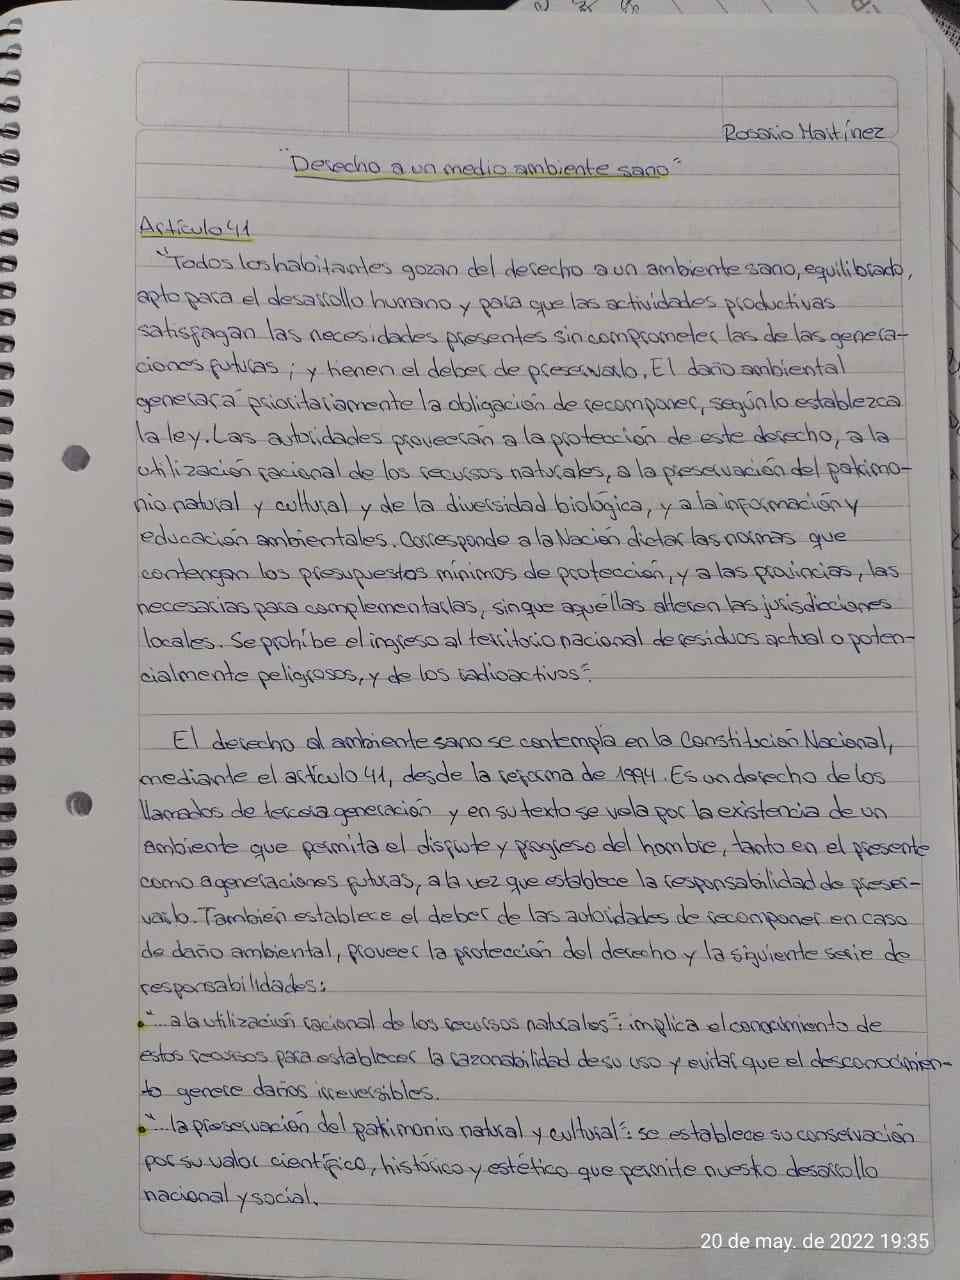 Rosario Martínez
"Derecho a un medio ambiente sano"
Artículo 41
"Todos los habitantes gozan del derecho a un ambiente sano, equilibrado,
apto para el desarrollo humano y para que las actividades productivas
satisfagan las necesidades presentes sin comprometer las de las genera-
ciones futuras; y tienen el deber de preservarlo. El daño ambiental
generará prioritariamente la obligación de recomponer, según lo establezca
la ley. Las autoridades proveerán a la protección de este derecho, a la
utilización racional de los recursos naturales, a la preservación del patrimo-
nio natural y cultural y de la diversidad biológica, y a la información y
educación ambientales. Corresponde a la Nación dictar las normas que
contengan los presupuestos mínimos de protección, y a las provincias, las
necesarias para complementarlas, sin que aquéllas alteren las jurisdicciones
locales. Se prohíbe el ingreso al territorio nacional de residuos actual o poten-
cialmente peligrosos, y de los radioactivos".
El derecho al ambiente sano se contempla en la Constitución Nacional,
mediante el artículo 41, desde la reforma de 1994. Es un derecho de los
llamados de tercera generación y en su texto se vela por la existencia de un
ambiente que permita el disfrute y progreso del hombre, tanto en el presente
como a generaciones futuras, a la vez que establece la responsabilidad de preser-
varlo. También establece el deber de las autoridades de recomponer en caso
de daño ambiental, proveer la protección del derecho y la siguiente serie de
responsabilidades:
• "... a la utilización racional de los recursos naturales": implica el conocimiento de
estos recursos para establecer la razonabilidad de su uso y evitar que el desconocimien-
to genere daños irreversibles.
• "... la preservación del patrimonio natural y cultural": se establece su conservación
por su valor científico, histórico y estético que permite nuestro desarrollo
nacional y social.
20 de may. de 2022 19:35